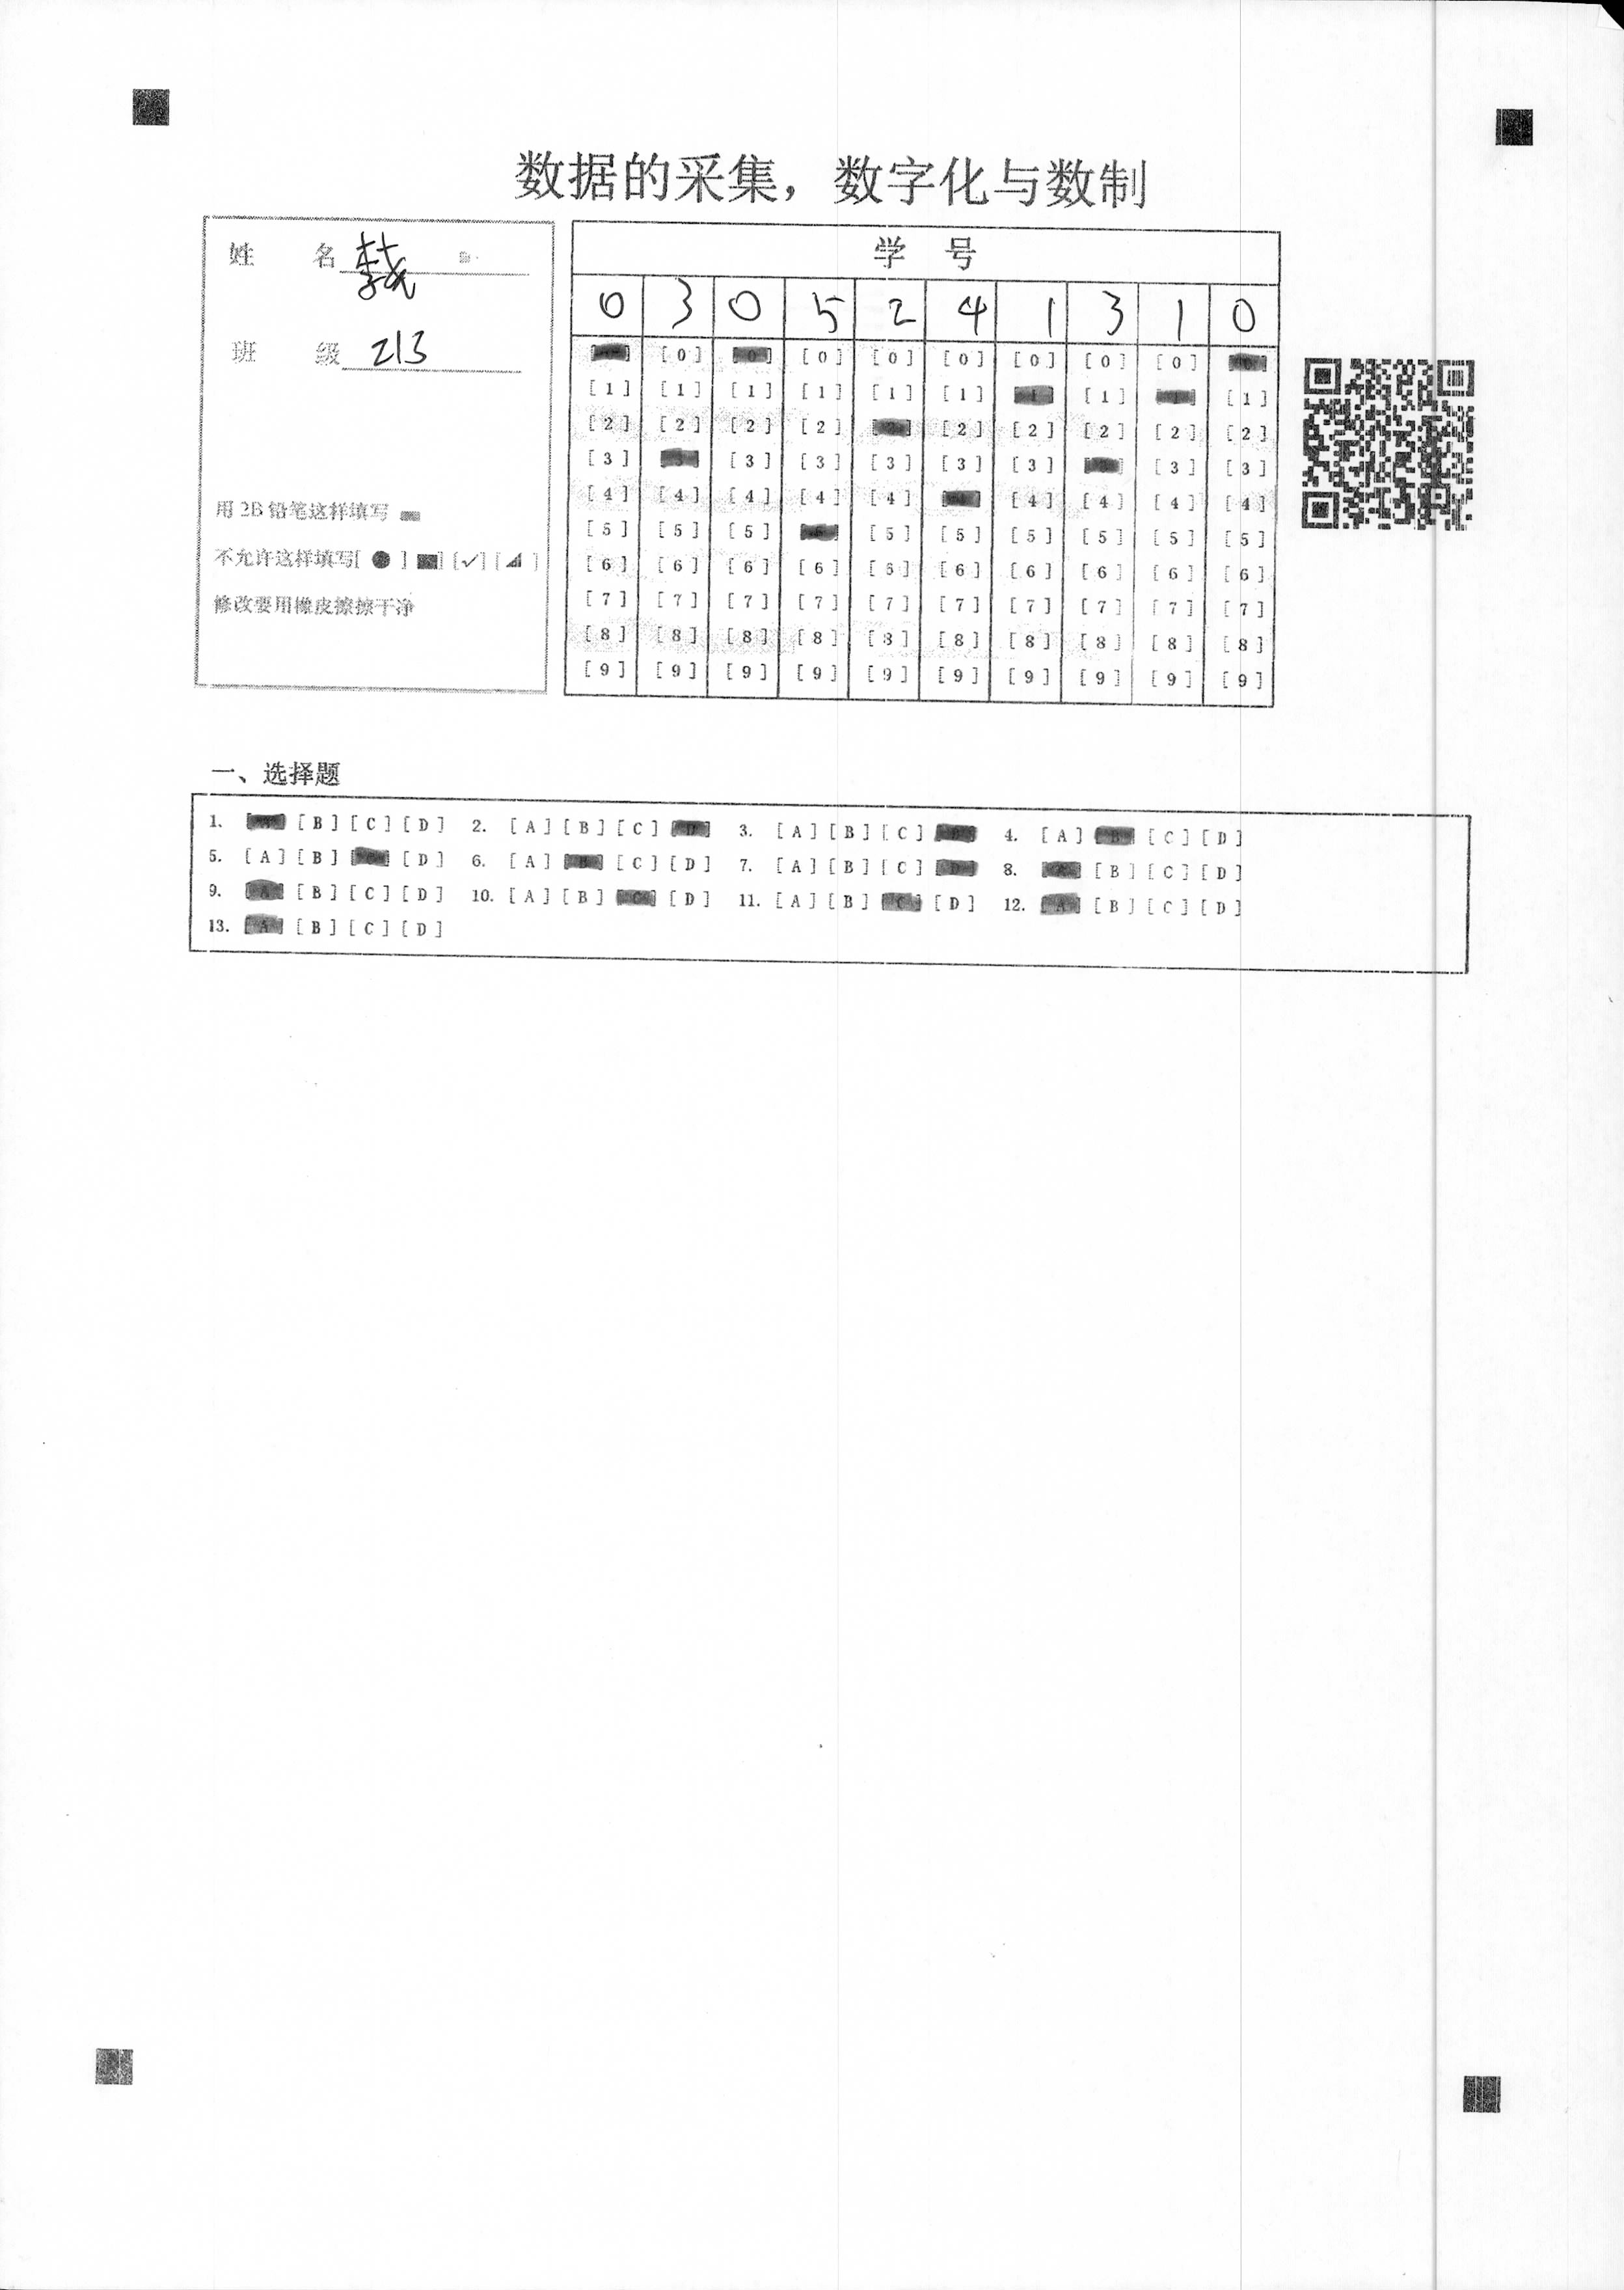 数据的采集，数字化与数制
姓 名
班 级 213
用 2B 铅笔这样填写
不允许这样填写[ ● ] ■] [✓] [◢ ]
修改要用橡皮擦擦干净
学 号
0 3 0 5 2 4 1 3 1 0
[0] [0] [0] [0] [0] [0] [0] [0]
[1] [1] [1] [1] [1] [1] [1] [1] [1] [1]
[2] [2] [2] [2] [2] [2] [2] [2] [2] [2]
[3] [3] [3] [3] [3] [3] [3] [3] [3]
[4] [4] [4] [4] [4] [4] [4] [4] [4] [4]
[5] [5] [5] [5] [5] [5] [5] [5] [5]
[6] [6] [6] [6] [6] [6] [6] [6] [6] [6]
[7] [7] [7] [7] [7] [7] [7] [7] [7] [7]
[8] [8] [8] [8] [8] [8] [8] [8] [8] [8]
[9] [9] [9] [9] [9] [9] [9] [9] [9] [9]
一、选择题
1. [B] [C] [D] 2. [A] [B] [C] [D] 3. [A] [B] [C] 4. [A] [B] [C] [D]
5. [A] [B] [D] 6. [A] [B] [C] [D] 7. [A] [B] [C] [D] 8. [A] [B] [C] [D]
9. [A] [B] [C] [D] 10. [A] [B] [C] [D] 11. [A] [B] [C] [D] 12. [A] [B] [C] [D]
13. [A] [B] [C] [D]